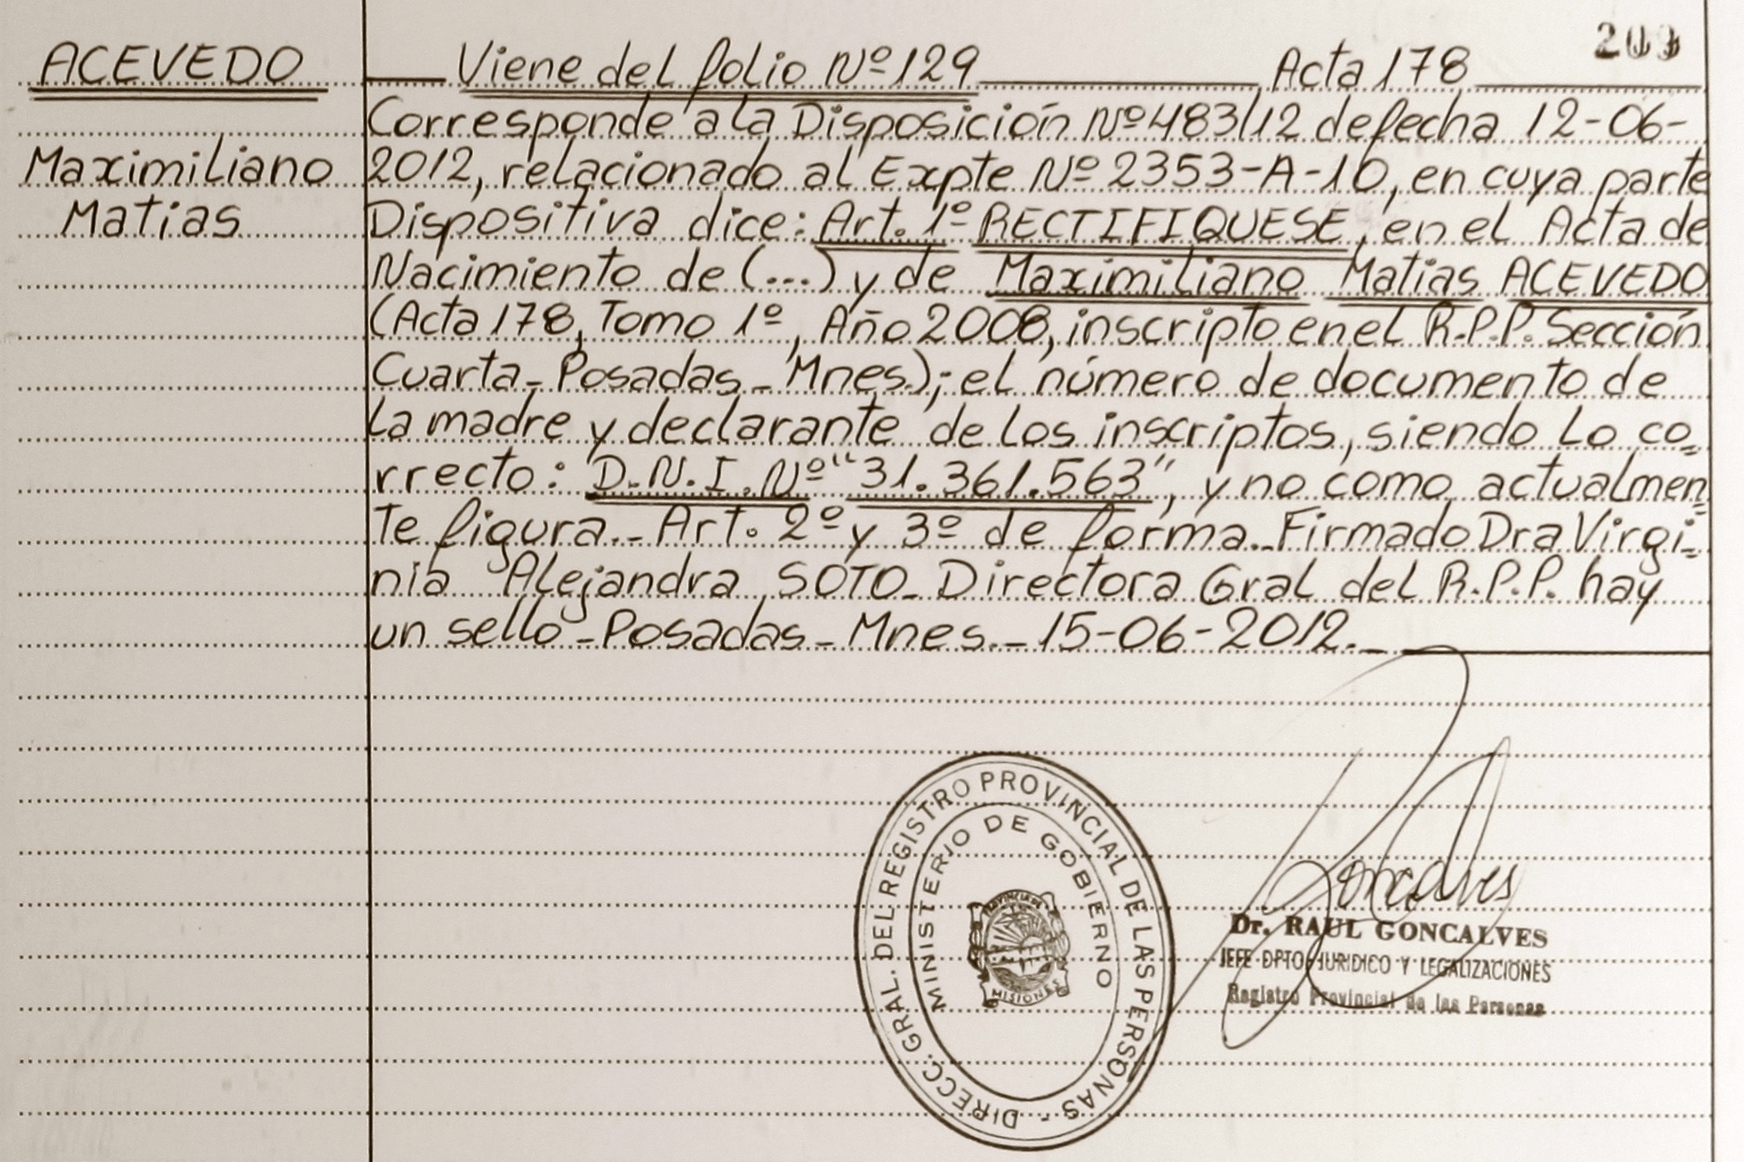 ACEVEDO
Maximiliano
Matias
Viene del folio Nº 129 Acta 178
Corresponde a la Disposición Nº 483/12 de fecha 12-06-
2012, relacionado al Expte Nº 2353-A-10, en cuya parte
Dispositiva dice: Art. 1º RECTIFIQUESE, en el Acta de
Nacimiento de (...) y de Maximiliano Matias ACEVEDO
(Acta 178, Tomo 1º, Año 2008, inscripto en el R.P.P. Sección
Cuarta_ Posadas_ Mnes.); el número de documento de
la madre y declarante de los inscriptos, siendo lo co=
rrecto: D.N.I. Nº "31.361.563", y no como actualmen
te figura._ Art. 2º y 3º de forma._ Firmado Dra Virgi=
nia Alejandra SOTO_ Directora Gral del R.P.P. hay
un sello_ Posadas_ Mnes._ 15-06-2012._
DIRECC. GRAL. DEL REGISTRO PROVINCIAL DE LAS PERSONAS -
MINISTERIO DE GOBIERNO
PROVINCIA DE
MISIONES
Goncalves
Dr. RAUL GONCALVES
JEFE DPTO JURIDICO Y LEGALIZACIONES
Registro Provincial de las Personas